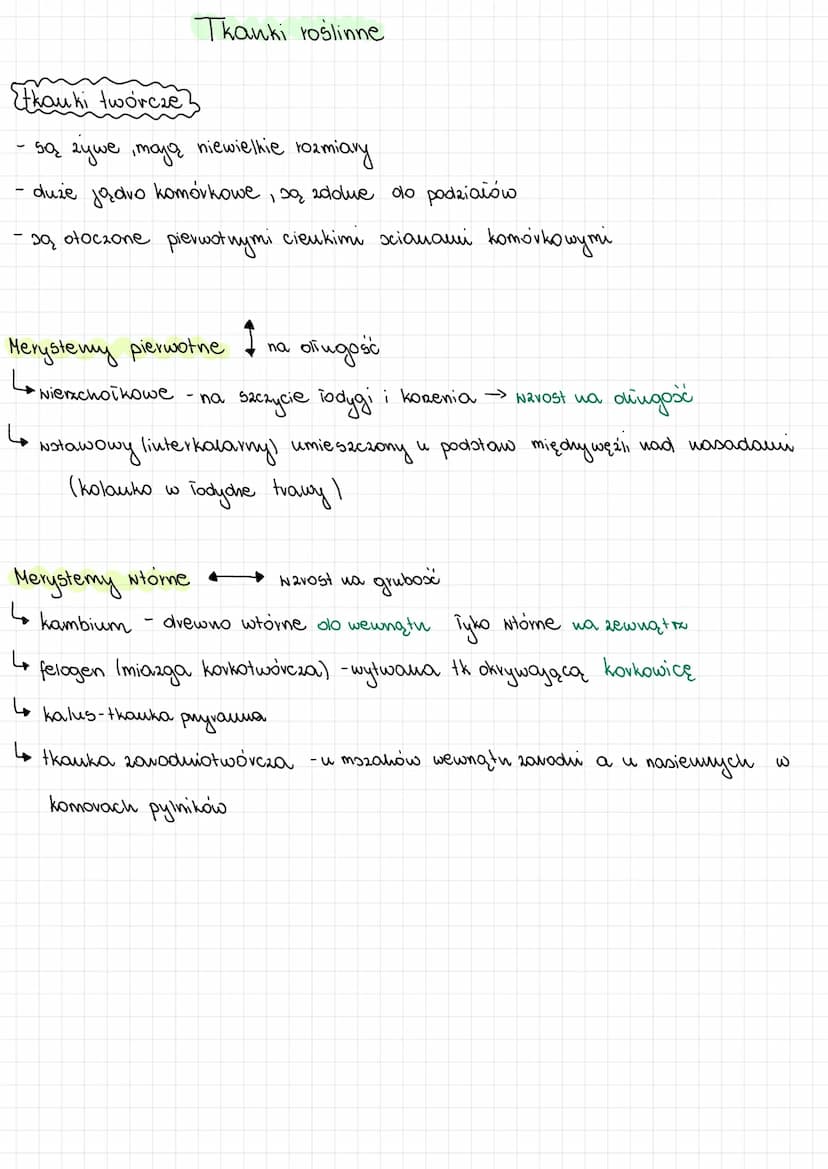 Tkanki roślinne
tkanki twórcze
- są żywe, mają niewielkie rozmiary
- duże jądro komórkowe, są zdolne do podziałów
- są otoczone pierwotnymi cienkimi scianami komórkowymi
Merystemy pierwotne ↕ na długość
↳ wierzchołkowe - na szczycie łodygi i korzenia → wzrost na długość
↳ wstawowy (interkalarny) umieszczony u podstaw międzywęźli nad nasadami
(kolanko w łodydze trawy)
Merystemy wtórne ↔ wzrost na grubość
↳ kambium - drewno wtórne do wewnątrz łyko wtórne na zewnątrz
↳ felogen (miazga korkotwórcza) - wytwarza tk okrywającą korkowicę
↳ kalus - tkanka przyranna
↳ tkanka zarodniotwórcza - u mszaków wewnątrz zarodni a u nasiennych w
komorach pylników